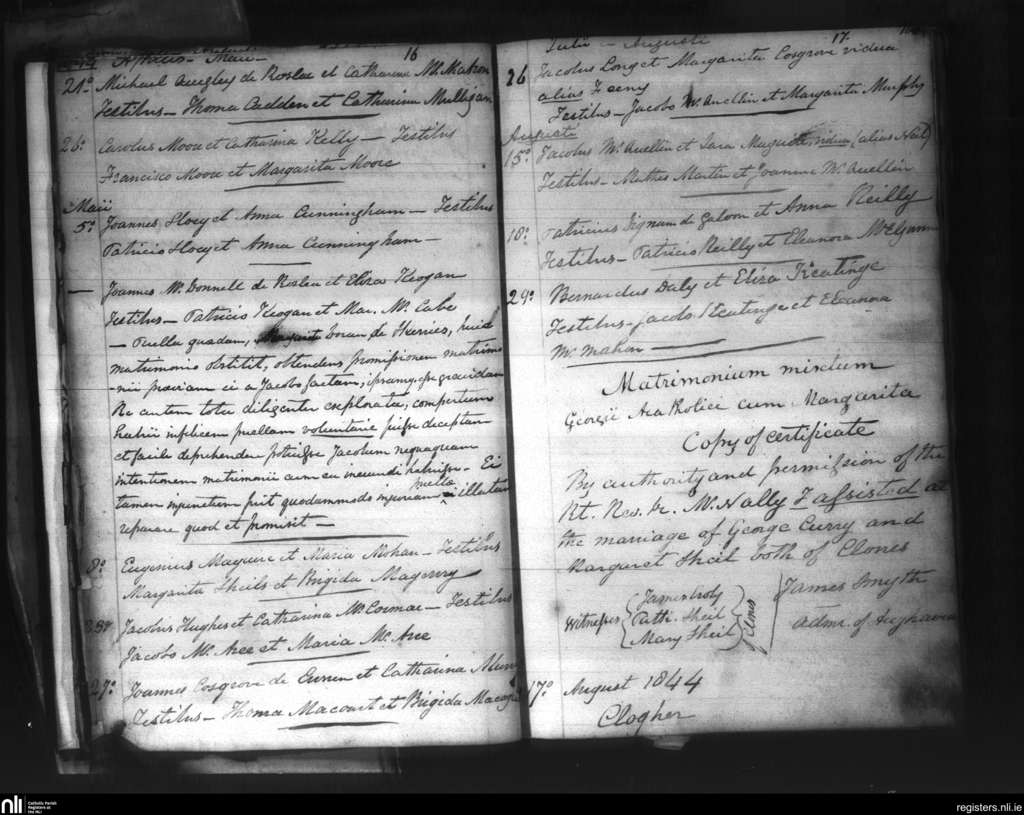 16
Aprilis - Maii -
21° Michael Quigley de Roslea et Catharina Mc Mahon
Testibus - Thoma Cadden et Catharina Mulligan
26° Carolus Moore et Catharina Kelly - Testibus
Francisco Moore et Margarita Moore
Maii
5° Joannes Hoey et Anna Cunningham - Testibus
Patricio Hoey et Anna Cunningham -
- Joannes Mc Donnell de Roslea et Eliza Keogan
Testibus - Patricio Keogan et Mar. Mc Cabe
- Puella quadam, Doran de huic
matrimonio obstitit, obtendens promissionem matrimo-
nii praeviam ei a Jacobo factam, ipsamq. esse gravidam
Re autem tota diligenter explorata, compertum
habui infelicem puellam voluntarie fuisse deceptam
et facile deprehendere potuisse Jacobum nequaquam
intentionem matrimonii cum ea ineundi habuisse. Ei
tamen injunctum fuit quodammodo injuriam puellae illatam
reparare quod et promisit -
8° Eugenius Maguire et Maria Mohan - Testibus
Margarita Sheils et Brigida Magenry
23° Jacobus Hughes et Catharina Mc Cormac - Testibus
Jacobo Mc Aree et Maria Mc Aree
27° Joannes Cosgrove de et Catharina
Testibus - Thoma Macourt et Brigida
17
Julii - Augusti
26 Jacobus Long et Margarita Cosgrove vidua
alias Feeny
Testibus - Jacobo Mc Quellin et Margarita Murphy
Augusti
15° Jacobus Mc Quellin et Sara Maguire, vidua, (alias)
Testibus - Matheo Martin et Joanne Mc Quellin
18° Patricius Dignam de Galoon et Anna Reilly
Testibus - Patricio Reilly et Eleanora Mc Elgunn
29° Bernardus Daly et Eliza Keatinge
Testibus - Jacobo Keatinge et Eleanora
Mc Mahon -
Matrimonium mixtum
Georgii Acatholici cum Margarita
Copy of certificate
By authority and permission of the
Rt. Rev. Dr. McNally I assisted at
the marriage of George Curry and
Margaret Sheil both of Clones
Witnesses { James
Cath. Sheil
Mary Sheil } Clones
James Smyth
Admr. of
17° August 1844
Clogher
nli
Catholic Parish
Registers at
the NLI
registers.nli.ie